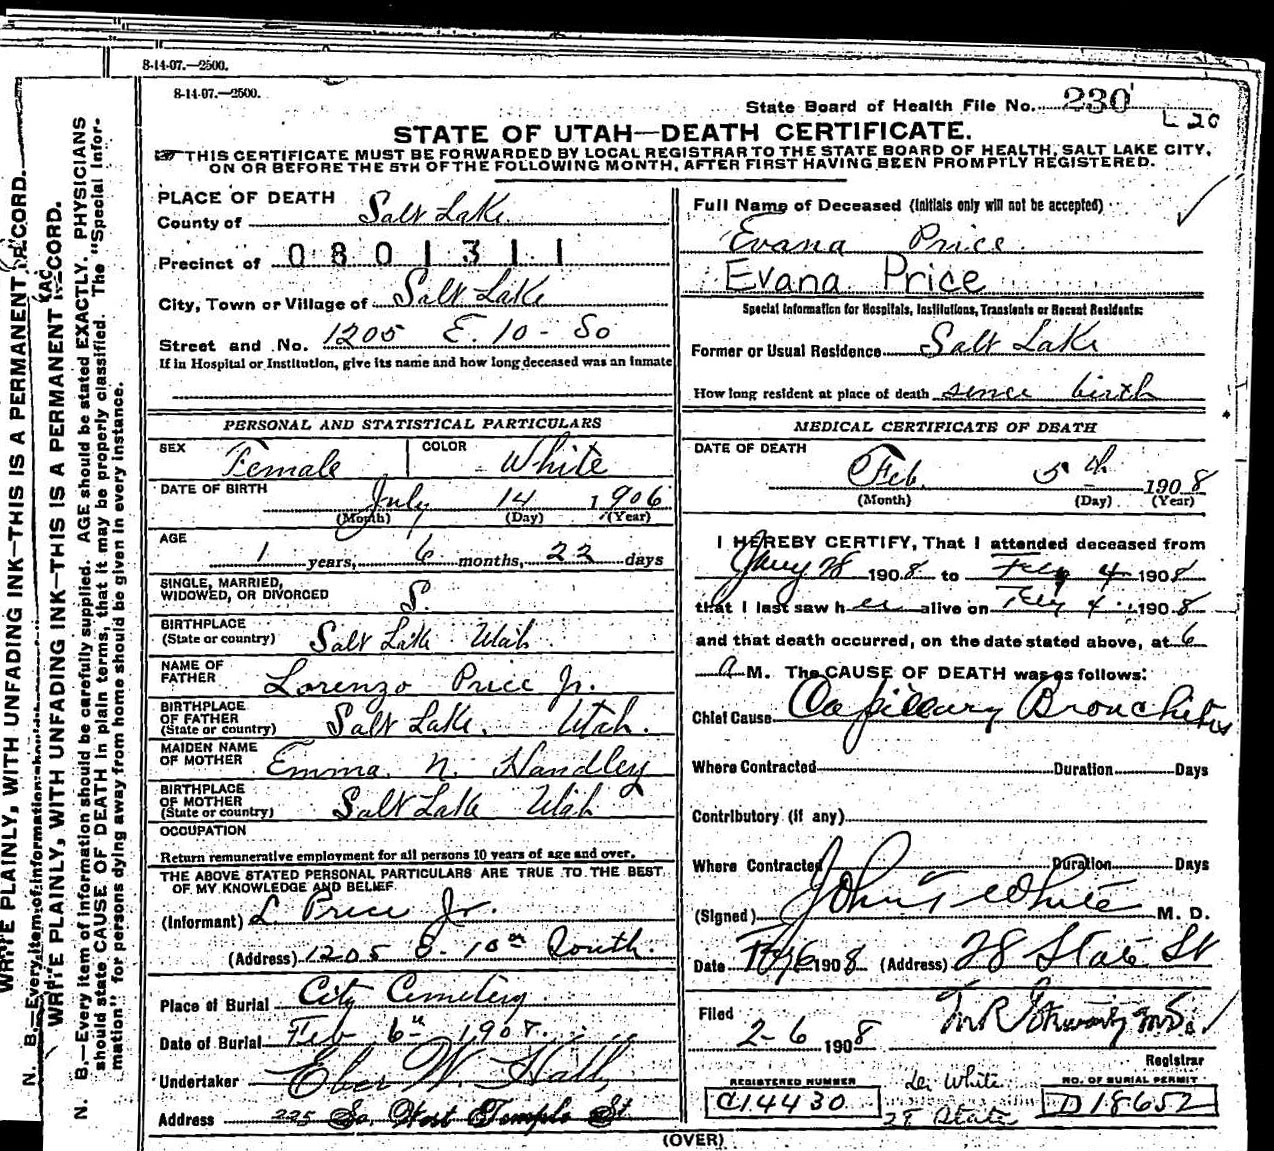 8-14-07.—2500.
8-14-07.—2500.
State Board of Health File No. 230
L 20
STATE OF UTAH—DEATH CERTIFICATE.
THIS CERTIFICATE MUST BE FORWARDED BY LOCAL REGISTRAR TO THE STATE BOARD OF HEALTH, SALT LAKE CITY,
ON OR BEFORE THE 5TH OF THE FOLLOWING MONTH, AFTER FIRST HAVING BEEN PROMPTLY REGISTERED.
PLACE OF DEATH
County of Salt Lake
Precinct of 0801311
City, Town or Village of Salt Lake
Street and No. 1205 E. 10 - So
If in Hospital or Institution, give its name and how long deceased was an inmate
PERSONAL AND STATISTICAL PARTICULARS
SEX Female COLOR White
DATE OF BIRTH July 14 1906
(Month) (Day) (Year)
AGE
1 years, 6 months, 22 days
SINGLE, MARRIED,
WIDOWED, OR DIVORCED S.
BIRTHPLACE
(State or country) Salt Lake Utah
NAME OF
FATHER Lorenzo Price Jr.
BIRTHPLACE
OF FATHER
(State or country) Salt Lake. Utah.
MAIDEN NAME
OF MOTHER Emma N. Handley
BIRTHPLACE
OF MOTHER
(State or country) Salt Lake Utah
OCCUPATION
Return remunerative employment for all persons 10 years of age and over.
THE ABOVE STATED PERSONAL PARTICULARS ARE TRUE TO THE BEST
OF MY KNOWLEDGE AND BELIEF
(Informant) L Price Jr.
(Address) 1205 E. 10th South.
Place of Burial City Cemetery
Date of Burial Feb 6th 1908.
Undertaker Eber W. Hall
Address 225 So. West Temple St
Full Name of Deceased (Initials only will not be accepted)
Evana Price
Evana Price
Special Information for Hospitals, Institutions, Transients or Recent Residents:
Former or Usual Residence Salt Lake
How long resident at place of death since birth
MEDICAL CERTIFICATE OF DEATH
DATE OF DEATH
Feb. 5th 1908
(Month) (Day) (Year)
I HEREBY CERTIFY, That I attended deceased from
Jany 28 1908 to Feby 4 1908
that I last saw her alive on Feby 4 1908
and that death occurred, on the date stated above, at 6
a M. The CAUSE OF DEATH was as follows:
Chief Cause Capillary Bronchitis
Where Contracted Duration Days
Contributory (if any)
Where Contracted Duration Days
(Signed) John T White M. D.
Date Feby 6 1908 (Address) 28 State St
Filed
2-6 1908
Registrar
REGISTERED NUMBER
C14430
White
28 State
NO. OF BURIAL PERMIT
D18652
(OVER)
WRITE PLAINLY, WITH UNFADING INK—THIS IS A PERMANENT RECORD.
N. B.—Every item of information should
WRITE PLAINLY, WITH UNFADING INK—THIS IS A PERMANENT RECORD.
N. B.—Every item of information should be carefully supplied. AGE should be stated EXACTLY. PHYSICIANS
should state CAUSE OF DEATH in plain terms, that it may be properly classified. The "Special Infor-
mation" for persons dying away from home should be given in every instance.